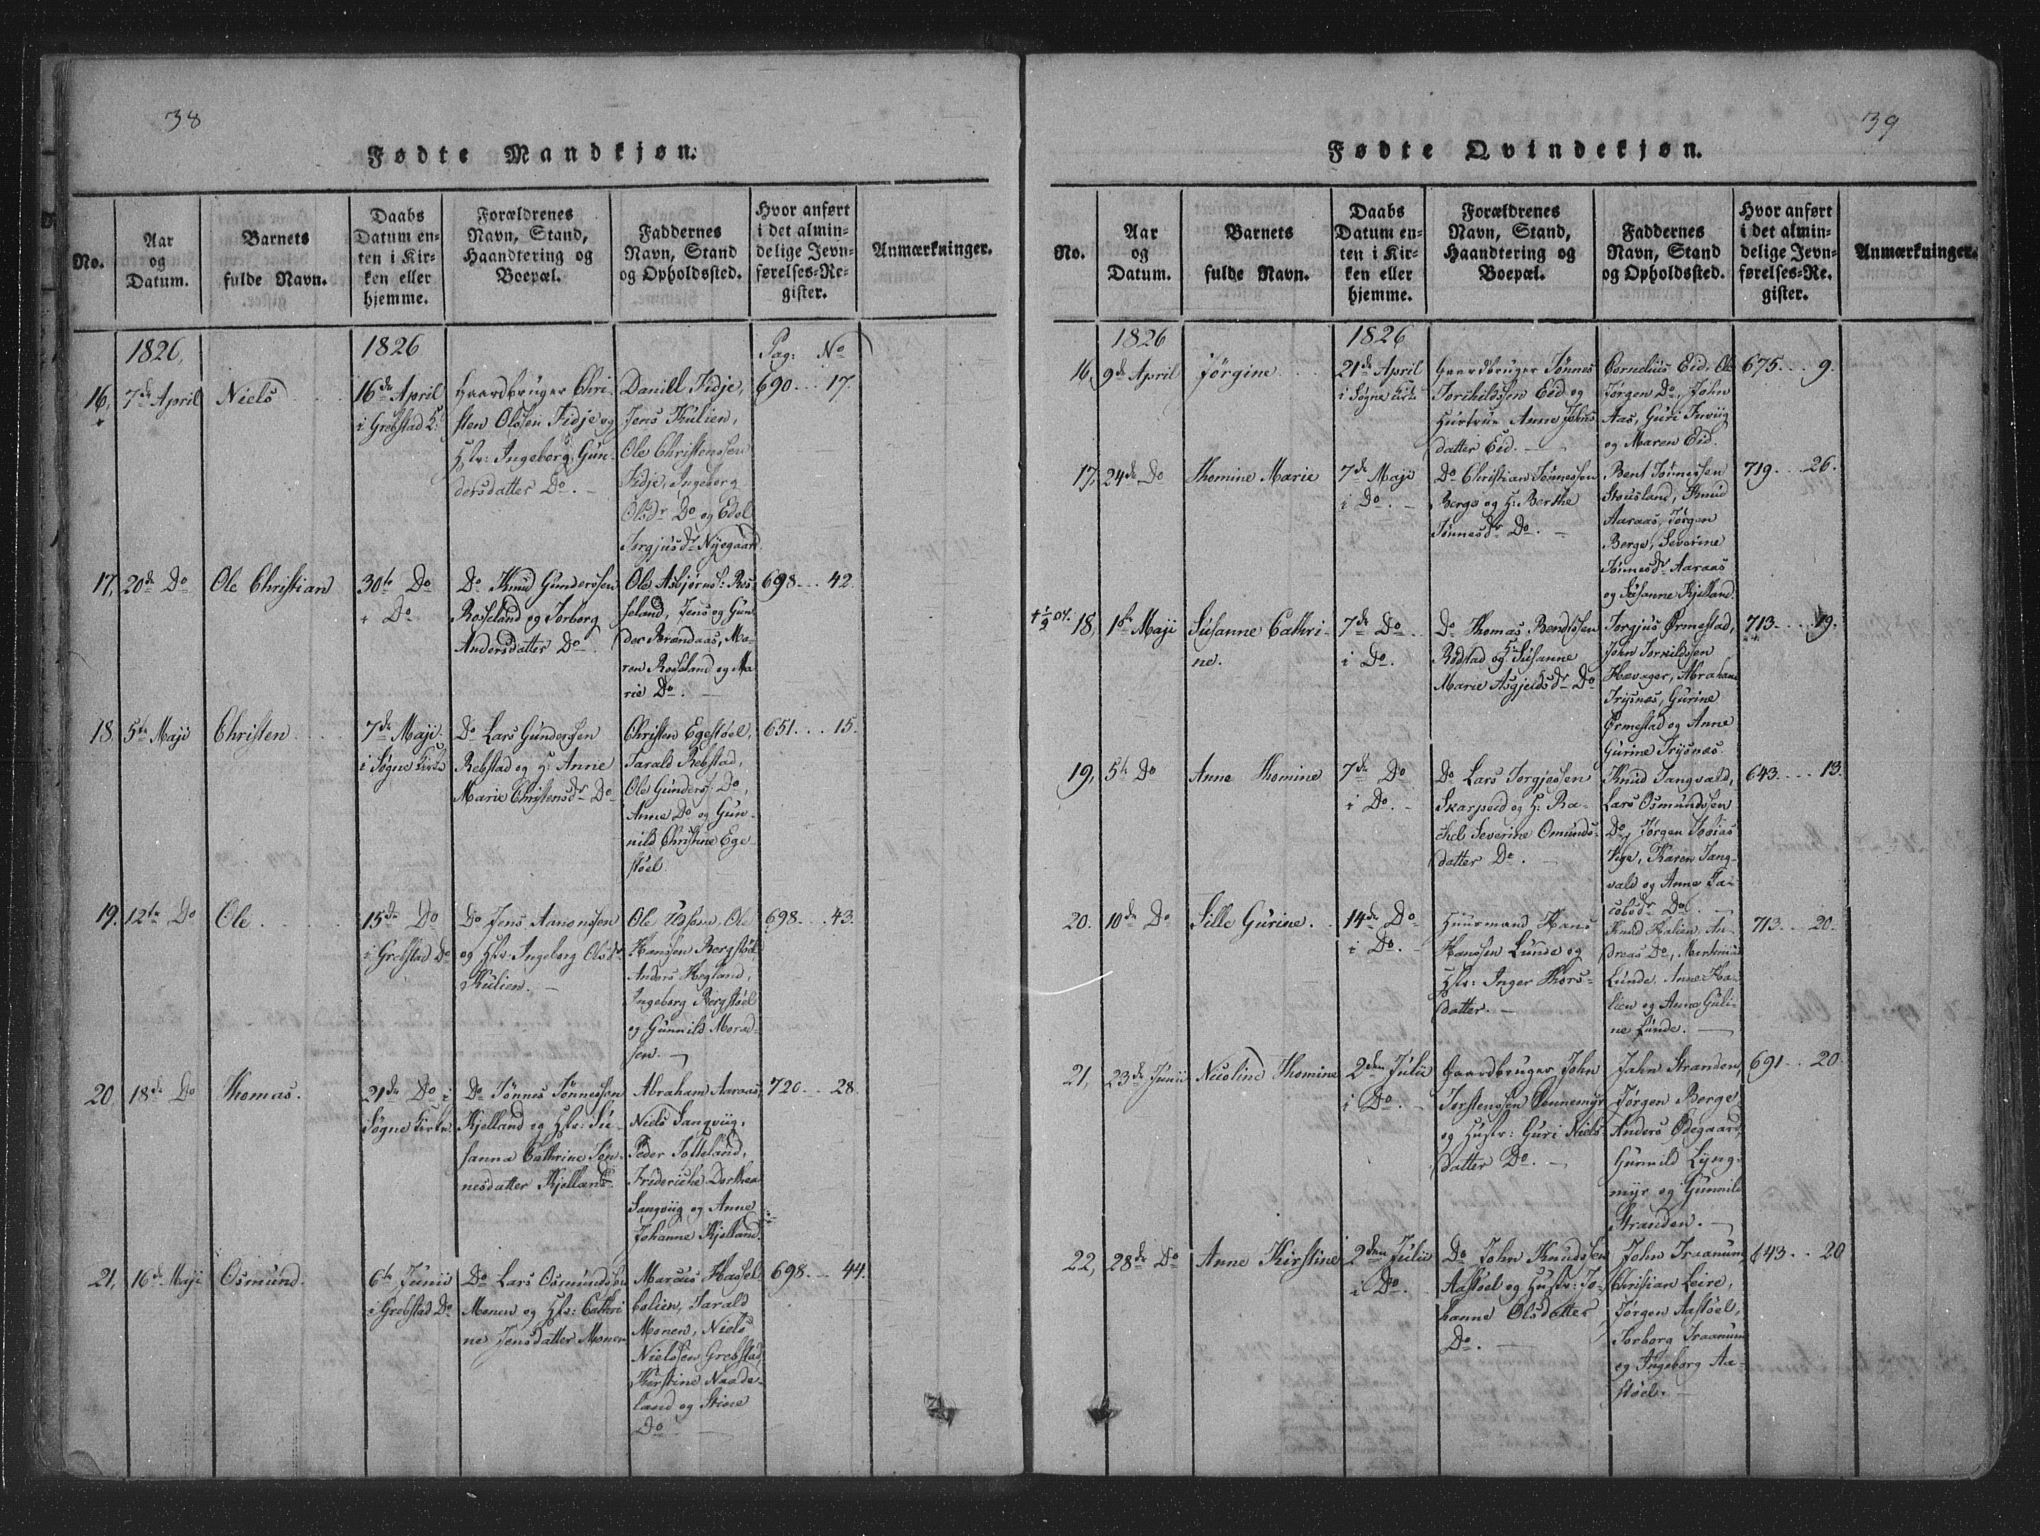 38
Fødte Mandkjøn.
No.
Aar
og
Datum.
Barnets
fulde Navn.
Daabs
Datum en-
ten i Kir-
ken eller
hjemme.
Forældrenes
Navn, Stand,
Haandtering og
Boepæl.
Faddernes
Navn, Stand
og Opholdssted.
Hvor anført
i det almin-
delige Jevn-
førelses-Re-
gister.
Anmærkninger.
1826.
1826
Pag: No
16,
7de April
Niels
16de April
i Grebstad K:
Gaardbruger Chri-
sten Olsen Fidje og
Hstr: Ingeborg Gun-
dersdatter Do. -
Daniel Fidje,
Jens Kulien,
Ole Christenssen
Fidje, Ingeborg
Olsdr Do og Edel
Torgjusdr Nyegaard
690 17.
17,
20de Do
Ole Christian
30te Do
i Do.
Do Knud Gunderssen
Roseland og Torborg
Andersdatter Do.
Ole Asbjørns: Ros-
seland, Jens og Gun-
der Brandaas, Ma-
ren Roseland og Ma
rie Do.
698 42.
18.
5te Maji
Christen
7de Maji
i Søgne Kirke
Do Lars Gundersen
Rebstad og H: Anne
Marie Christensdr Do
Christen Egestøel,
Tarald Rebstad,
Ole Gunders: Do,
Anne Do og Gun-
nild Christine Ege-
støel
651 15.
19.
12te Do
Ole
15de Do
i Grebstad Do
Do Jens Aanonssen
og Hstr: Ingeborg Olsdr
Kulien. -
Ole Ole
Hansen Bergstøel
Anders Hegland,
Ingeborg Bergstøel
og Gunnild
sen. -
698 43.
20.
18de Do
Thomas.
21de Do i
Søgne Kirke
Do Tønnes Tønnessen
Kjelland og Hstr: Su-
sanna Cathrine Tøn-
nesdatter Kjelland
Abraham Aaraas,
Niels Langviig,
Peder Tofteland,
Frideriche Dorthea
Langviig og Anne
Johanne Kjelland.
720 28.
21,
16de Maji
Osmund.
6te Junii
i Grebstad Do
Do Lars Osmundsen
Monen og Hstr: Cathri
ne Jensdatter Monen
Marcus Hassel
bolien, Tarald
Monen, Niels
Nielssen Grebstad
Kirstine Naade-
land og Stine
Do
698 44.
39
Fødte Qvindekjøn.
No.
Aar
og
Datum.
Barnets
fulde Navn.
Daabs
Datum en-
ten i Kir-
ken eller
hjemme.
Forældrenes
Navn, Stand,
Haandtering og
Boepæl.
Faddernes
Navn, Stand
og Opholdssted.
Hvor anført
i det almin-
delige Jevn-
førelses-Re-
gister.
Anmærkninger.
1826
1826
16,
9de April
Jørgine
21de April
i Søgne Kirke
Gaardbruger Tønnes
Torkildssen Eid og
Hustrue Anne Johns
datter Eid. -
Cornelius Eid, Ole
Jørgen Do, John
Aas, Guri
og Maren Eid.
675 9.
17,
24de Do
Thomine Marie
7de Maji
i Do. -
Do Christian Tønnessen
Berge og H: Berthe
Tønnesdr Do. -
Bent Tønnessen
Stousland, Knud
Aaraas, Jørgen
Berge, Severine
Tønnesdr Aaraas
og Susanne Kjelland.
719 26.
18,
1ste Maji
Susanne Cathri-
ne.
7de Do
i Do.
Do Thomas Bendtssen
Rødstad og Susanne
Marie Asgjeldsdr Do
Torgjus Ørmestad,
John Torkildssen
Havager, Abraham
Trysnas, Gurine
Ørmestad og Anne
Gurine Trysnas.
713 19.
19,
5te Do
Anne Thomine
7de Do
i Do. -
Do Lars Torgjessen
Skarpeid og H: Ra-
chel Severine Omunds-
datter Do. -
Knud Langvald,
Lars Osmundssen
Do, Jørgen Tobias
Vige, Karen Lang-
vald og Anne Ja-
cobsdr Do. -
643 13.
20.
10de Do
Sille Gurine.
14de Do
i Do.
Huusmand Hans
Hanssen Lunde og
Hstr: Inger Thors-
datter. -
Knud Halien, An-
dreas Do, Martinius
Lunde, Anne Ha-
lien og Anne Guli-
ne Lunde. -
713 20.
21,
23de Junii
Nicoline Thomine
2den Julii
i Do. -
Gaardbruger John
Torstenssen Rennemyr
og Hustr: Guri Niels-
datter Do. -
Jahn Stranden,
Jørgen Berge
Anders Ødegaard,
Gunnild Lyng-
myr og Gunnild
Stranden. -
691 20
22,
28de Do
Anne Kirstine
2den Julii
i Do.
Do John Knudssen
Aastøel og Hustr: Jo-
hanne Olsdatter
Do. -
John Traanum,
Christian Leire,
Jørgen Aastøel,
Torborg Traanum
og Ingeborg Aa-
støel. -
643 20